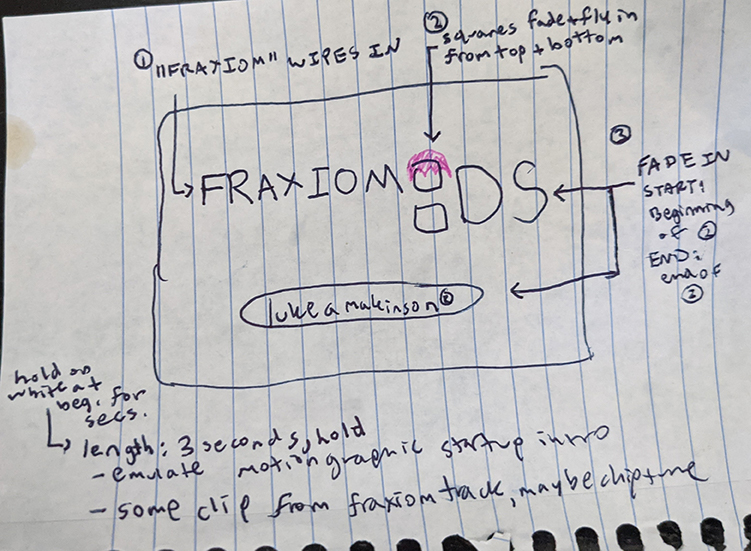 ① "FRAXIOM" WIPES IN
② squares fade + fly in
from top + bottom
FRAXIOM DS
③
FADE IN
START:
Beginning
of ②
END:
end of
②
lukeamakinson®
hold on
white at
beg. for
secs.
length: 3 seconds, hold
- emulate motion graphic startup intro
- some clip from fraxiom track, maybe chiptune